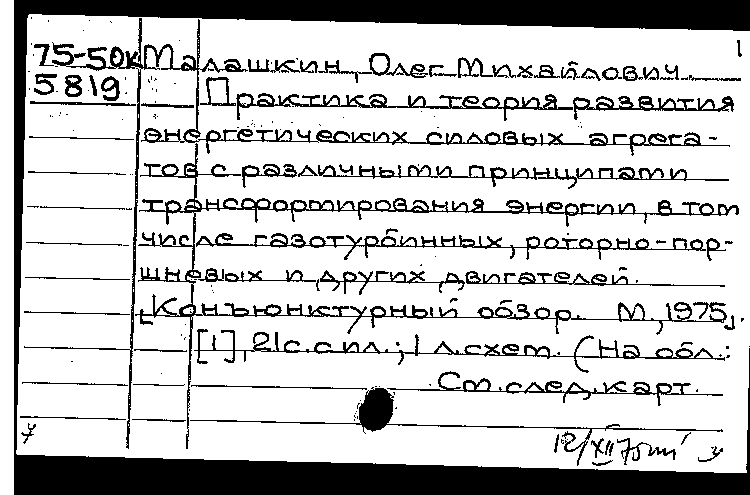 1
75-50к Малашкин, Олег Михайлович.
5819 Практика и теория развития
энергетических силовых агрега-
тов с различными принципами
трансформирования энергии, в том
числе газотурбинных, роторно-пор-
шневых и других двигателей.
[Конъюнктурный обзор. М., 1975].
[1], 21 с. с ил.; 1 л. схем. (На обл.:
См. след. карт.
7 12/XII 75